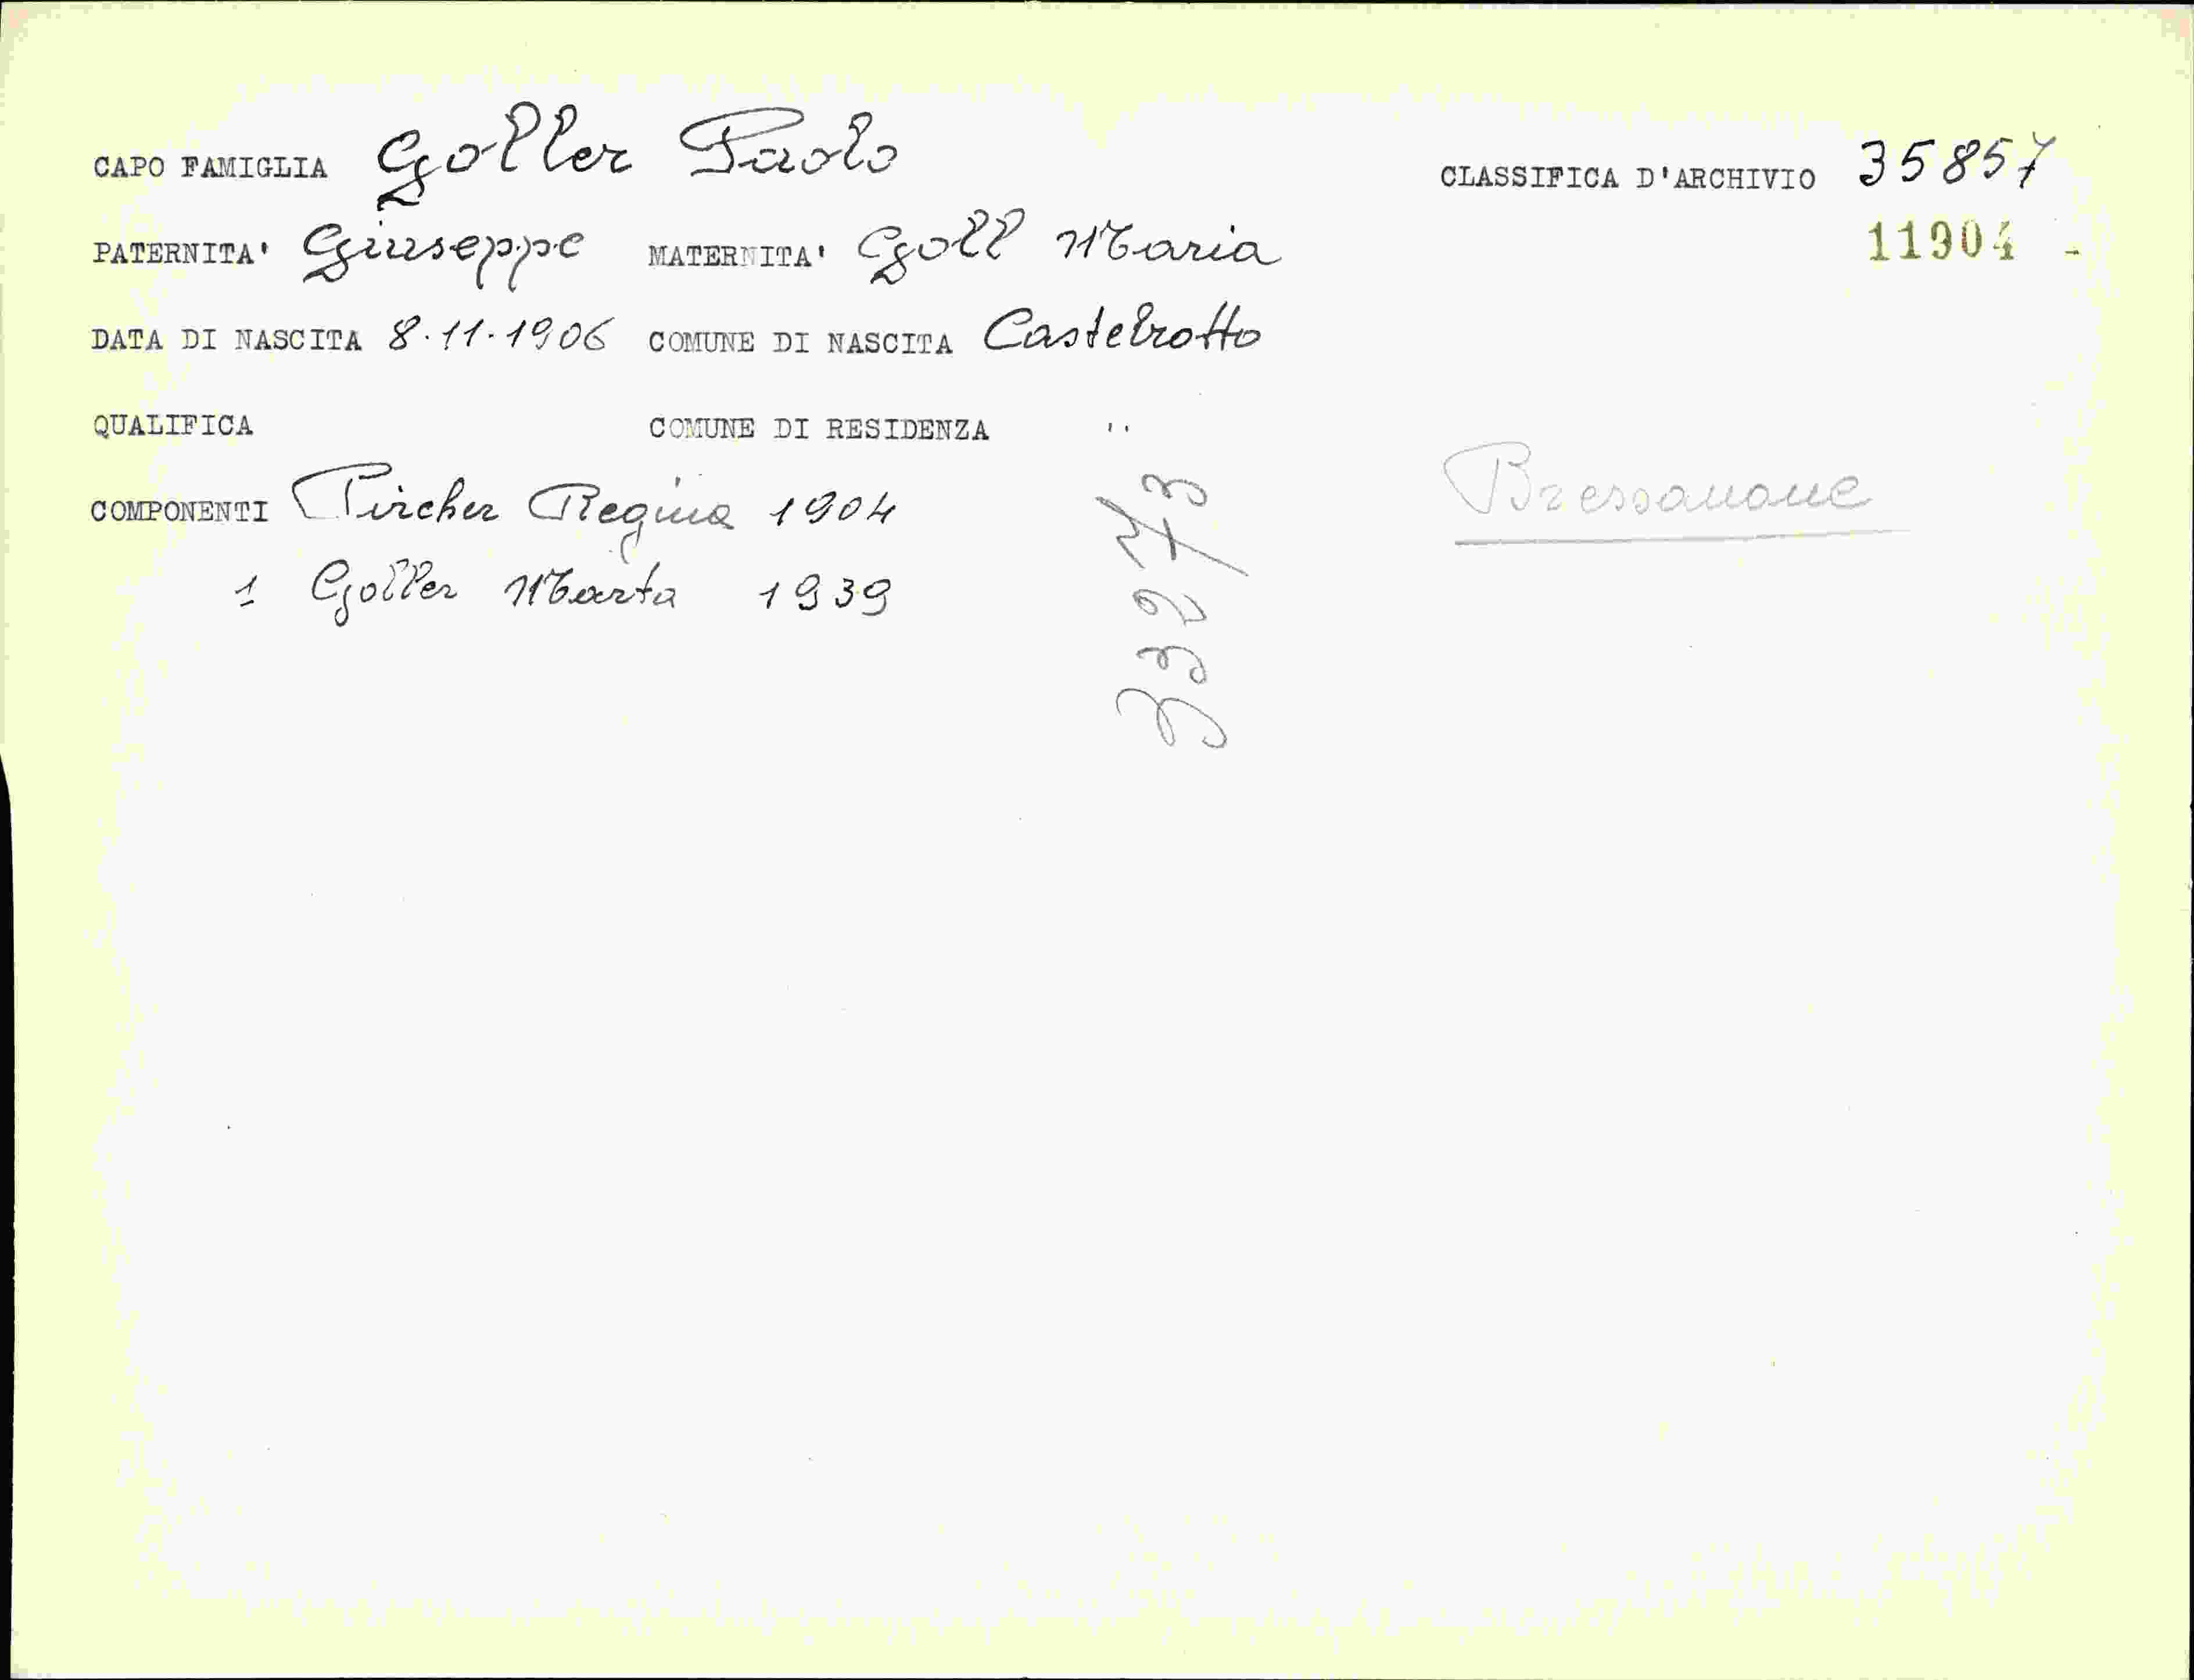 CAPO FAMIGLIA Goller Paolo CLASSIFICA D'ARCHIVIO 35857
PATERNITA' Giuseppe MATERNITA' Goll Maria 11904 -
DATA DI NASCITA 8.11.1906 COMUNE DI NASCITA Castelrotto
QUALIFICA COMUNE DI RESIDENZA "
COMPONENTI Pircher Regina 1904 Bressanone
1 Goller Marta 1939
33273